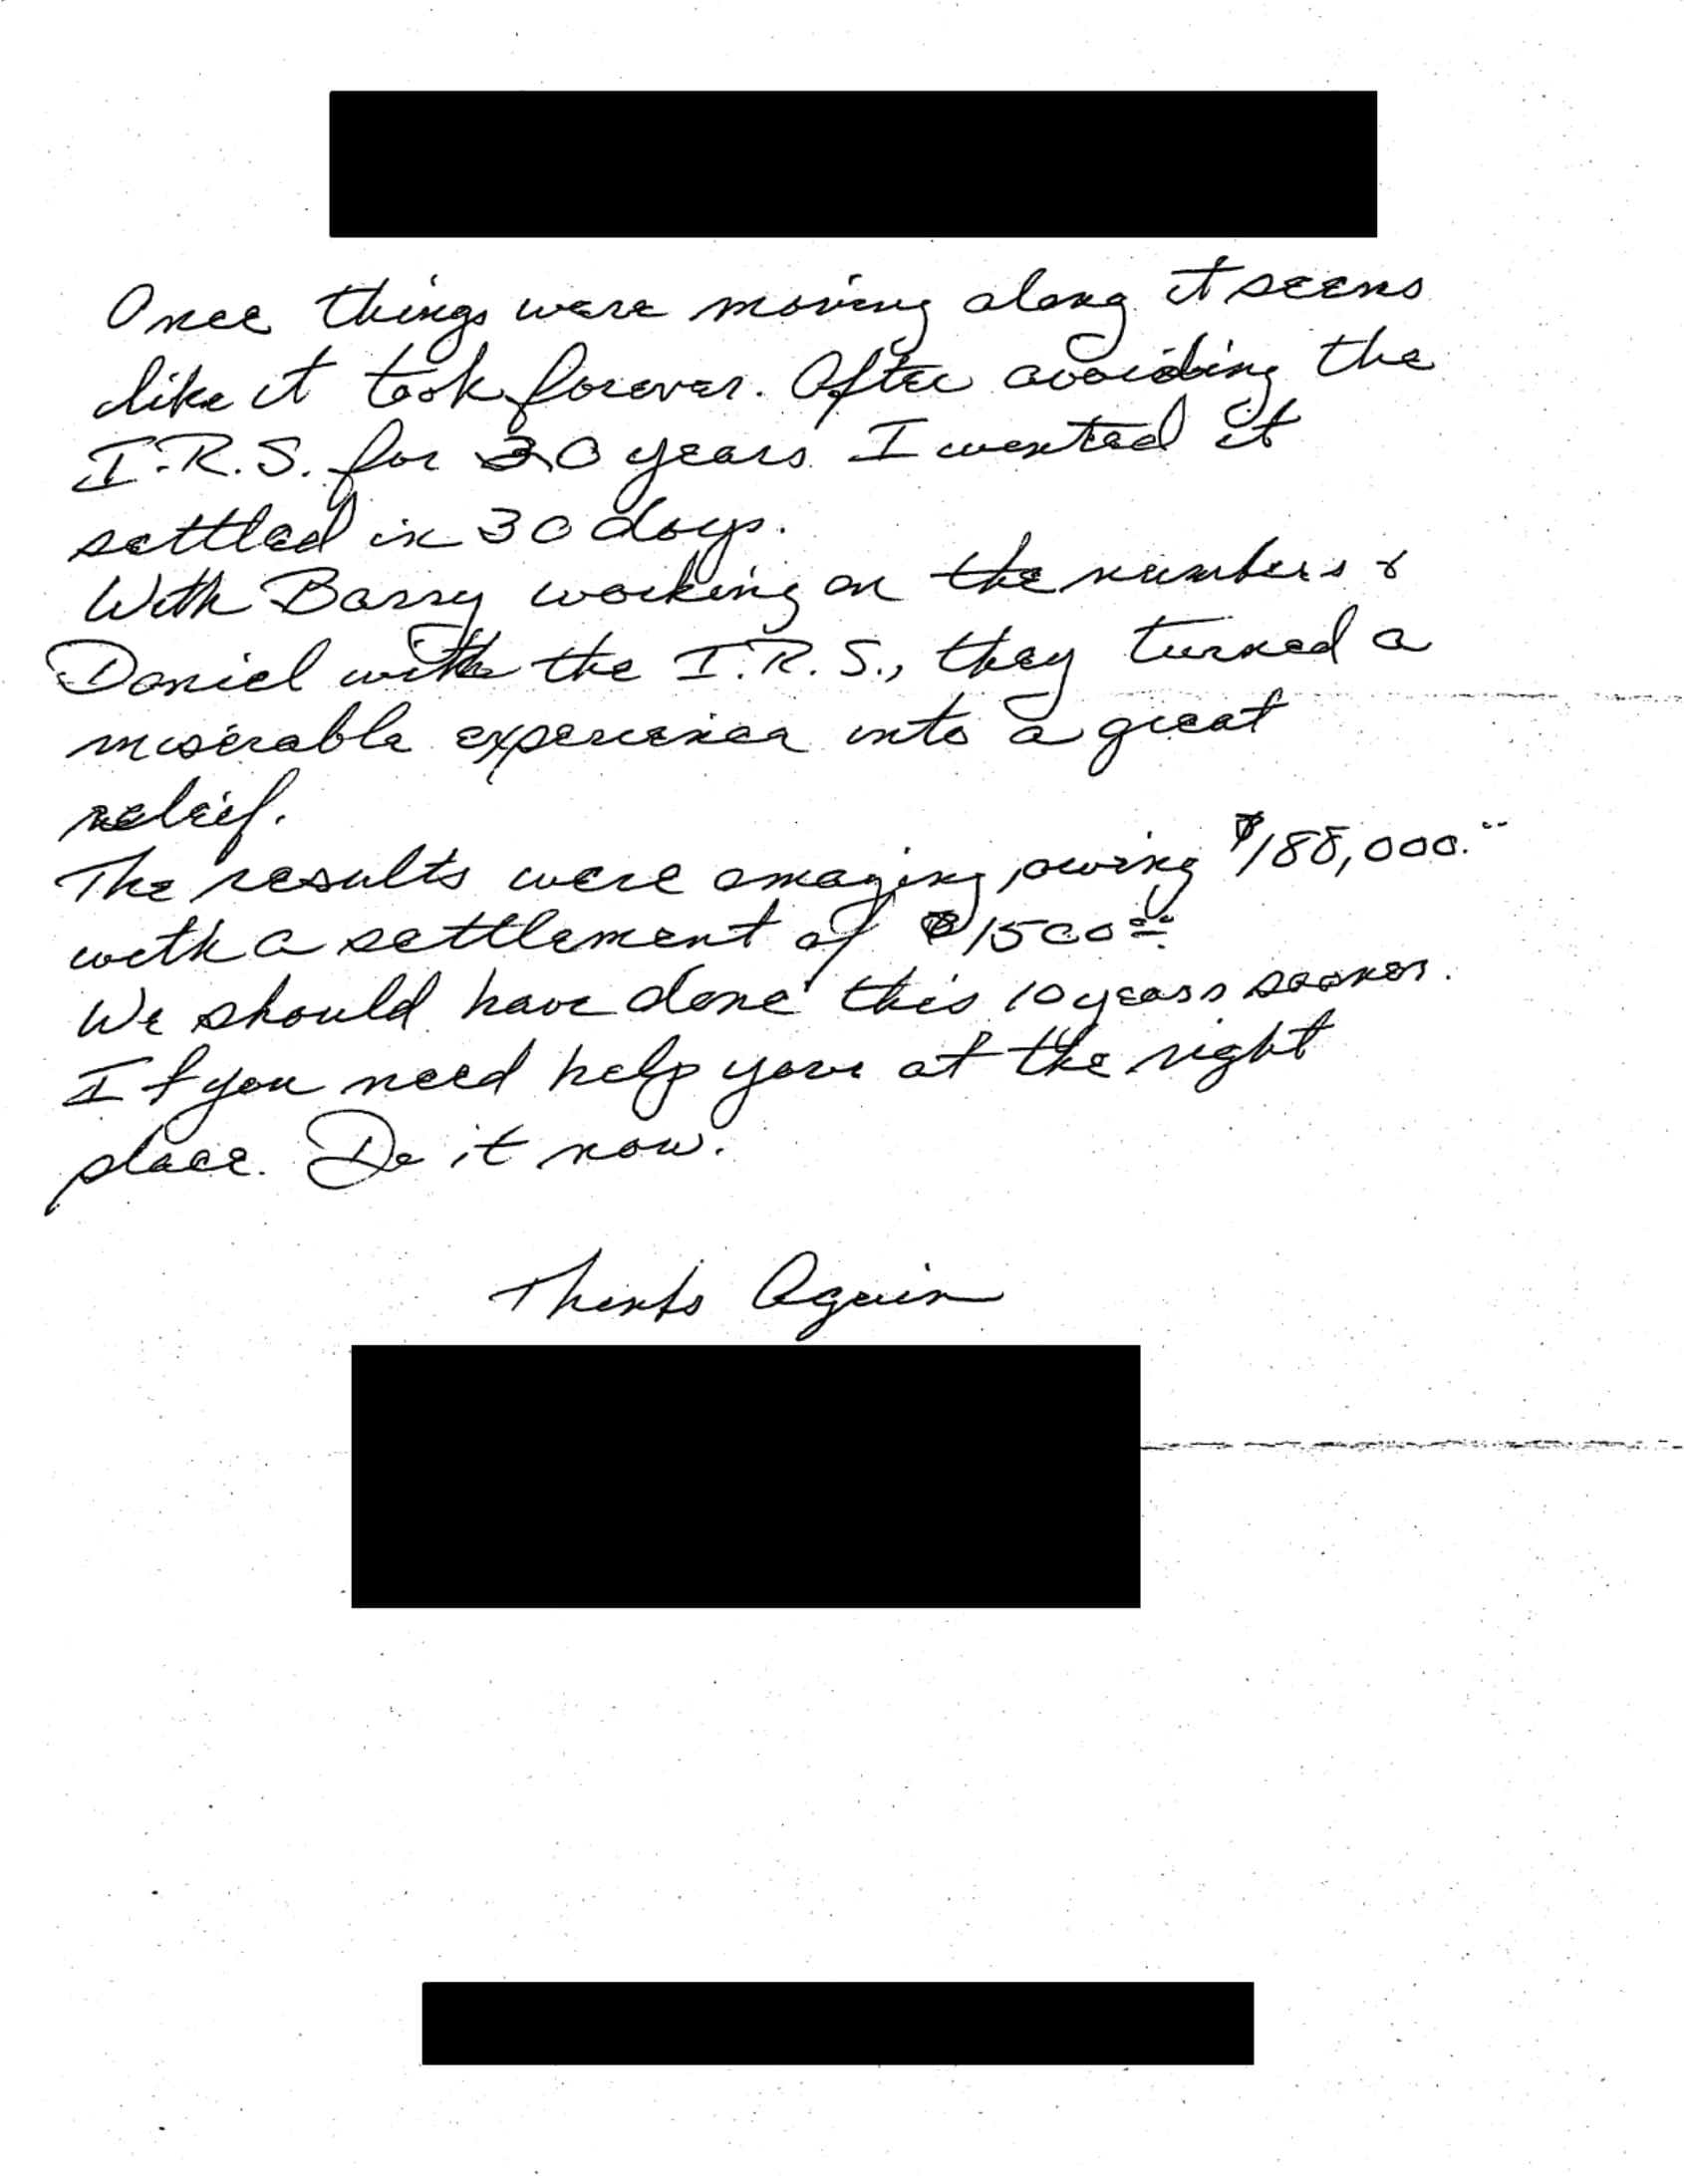 Once things were moving along it seems
like it took forever. After avoiding the
I.R.S. for 30 years I wanted it
settled in 30 days.
With Barry working on the numbers &
Daniel with the I.R.S., they turned a
miserable experience into a great
relief.
The results were amazing, owing $188,000.00
with a settlement of $1500.00
We should have done this 10 years sooner.
If you need help your at the right
place. Do it now.
Thanks Again